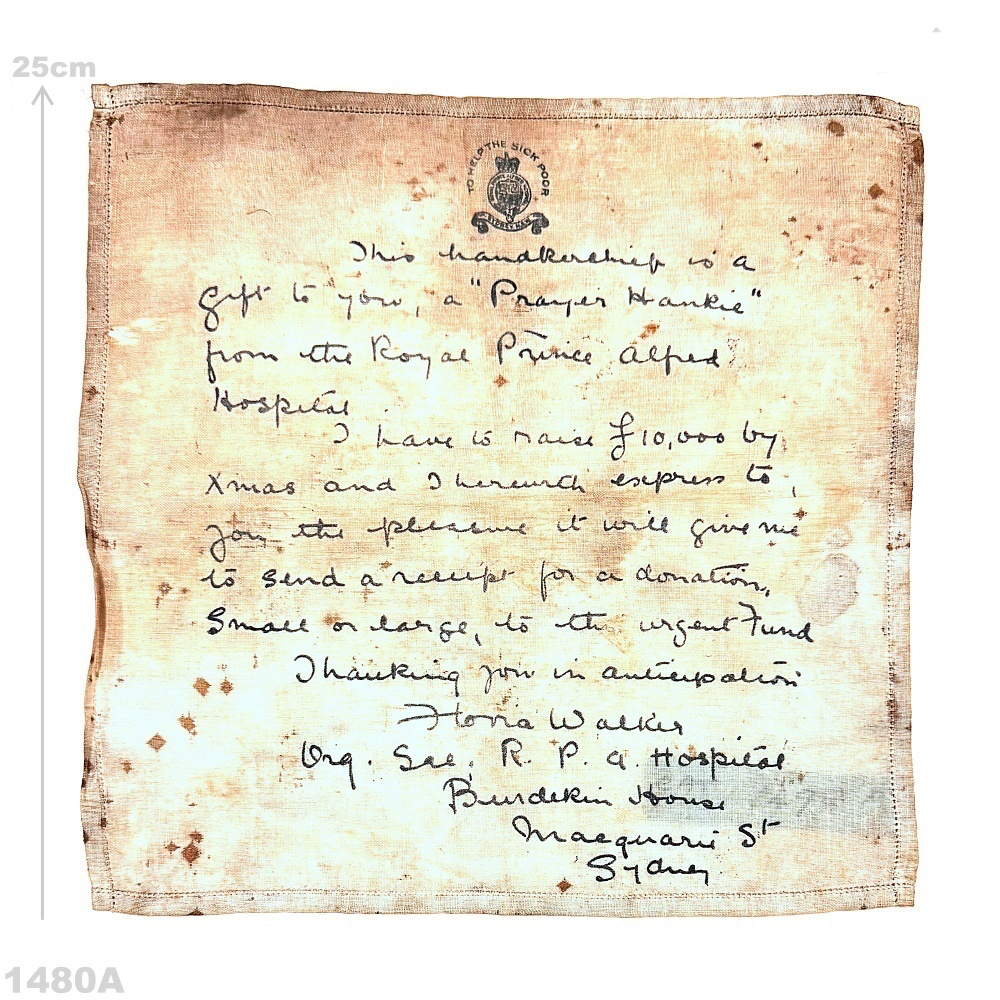 25cm
TO HELP THE SICK POOR
This handkerchief is a
gift to you, a "Prayer Hankie"
from the Royal Prince Alfred
Hospital.
I have to raise £10,000 by
Xmas and I herewith express to
you the pleasure it will give me
to send a receipt for a donation,
Small or large, to the urgent Fund
Thanking you in anticipation
Walker
Org. Sec. R. P. A. Hospital
Burdekin House
Macquarie St
Sydney
1480A